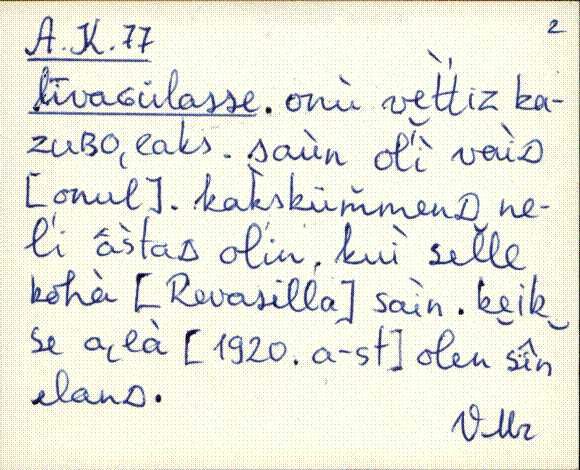 2
A.K. 77
līvaGülasse. onù vè̬t̀tiz ka-
zuBO̭laks. saùn olì̆ vaìD
[onul]. kakskümmenD ne-
lí âstaD olín, kuì selle
kohà [Revasilla] saìn. kẹik
se a̭là [1920. a-st] olen sîn
elanD.
V Mr